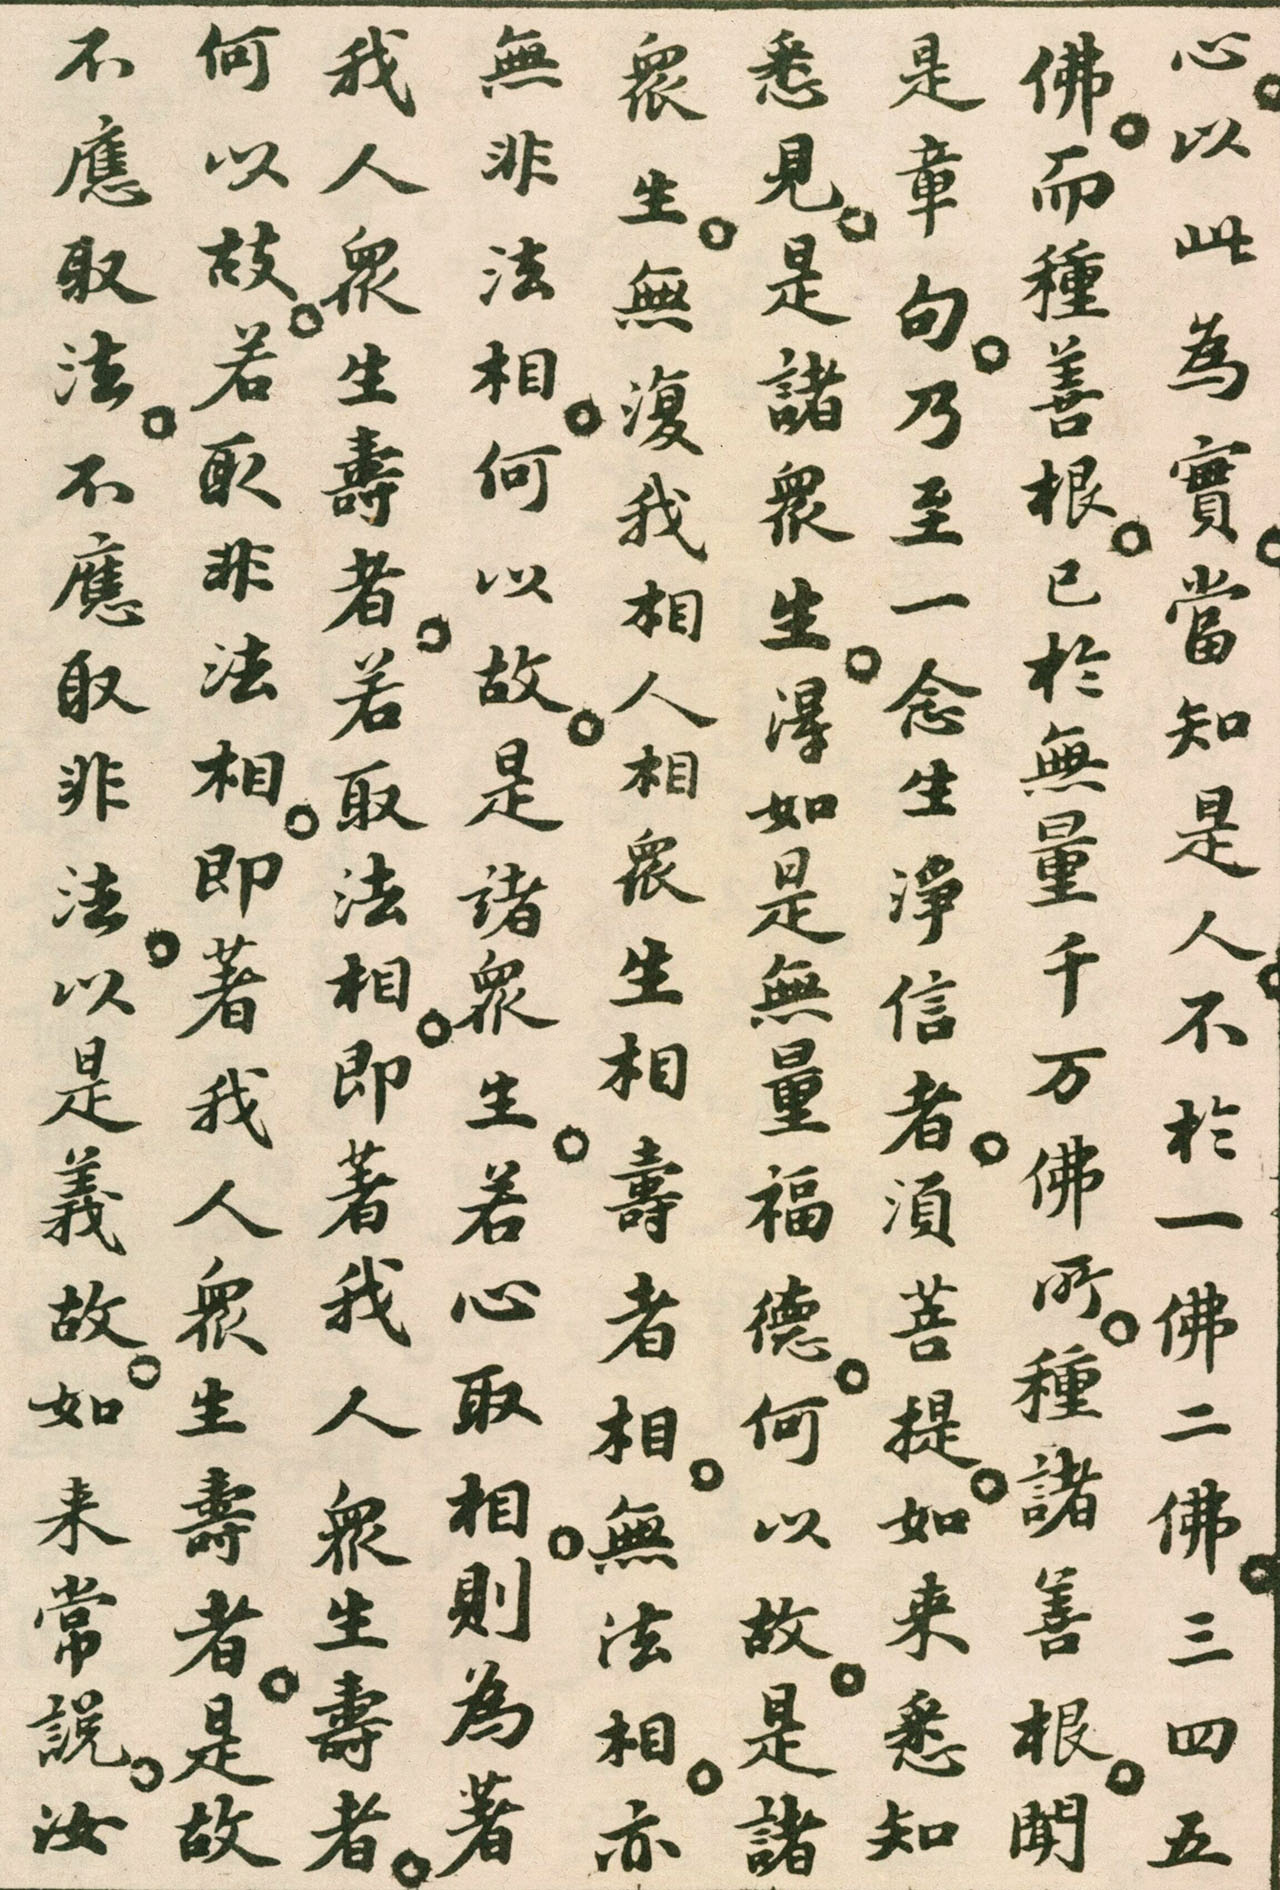 心。以此為實。當知是人。不於一佛二佛。三四五
佛。而種善根。已於無量千万佛所。種諸善根。聞
是章句。乃至一念生淨信者。須菩提。如来悉知
悉見。是諸衆生。得如是無量福德。何以故。是諸
衆生。無復我相人相衆生相壽者相。無法相。亦
無非法相。何以故。是諸衆生。若心取相。則為著
我人衆生壽者。若取法相。即著我人衆生壽者。
何以故。若取非法相。即著我人衆生壽者。是故
不應取法。不應取非法。以是義故。如来常說。汝